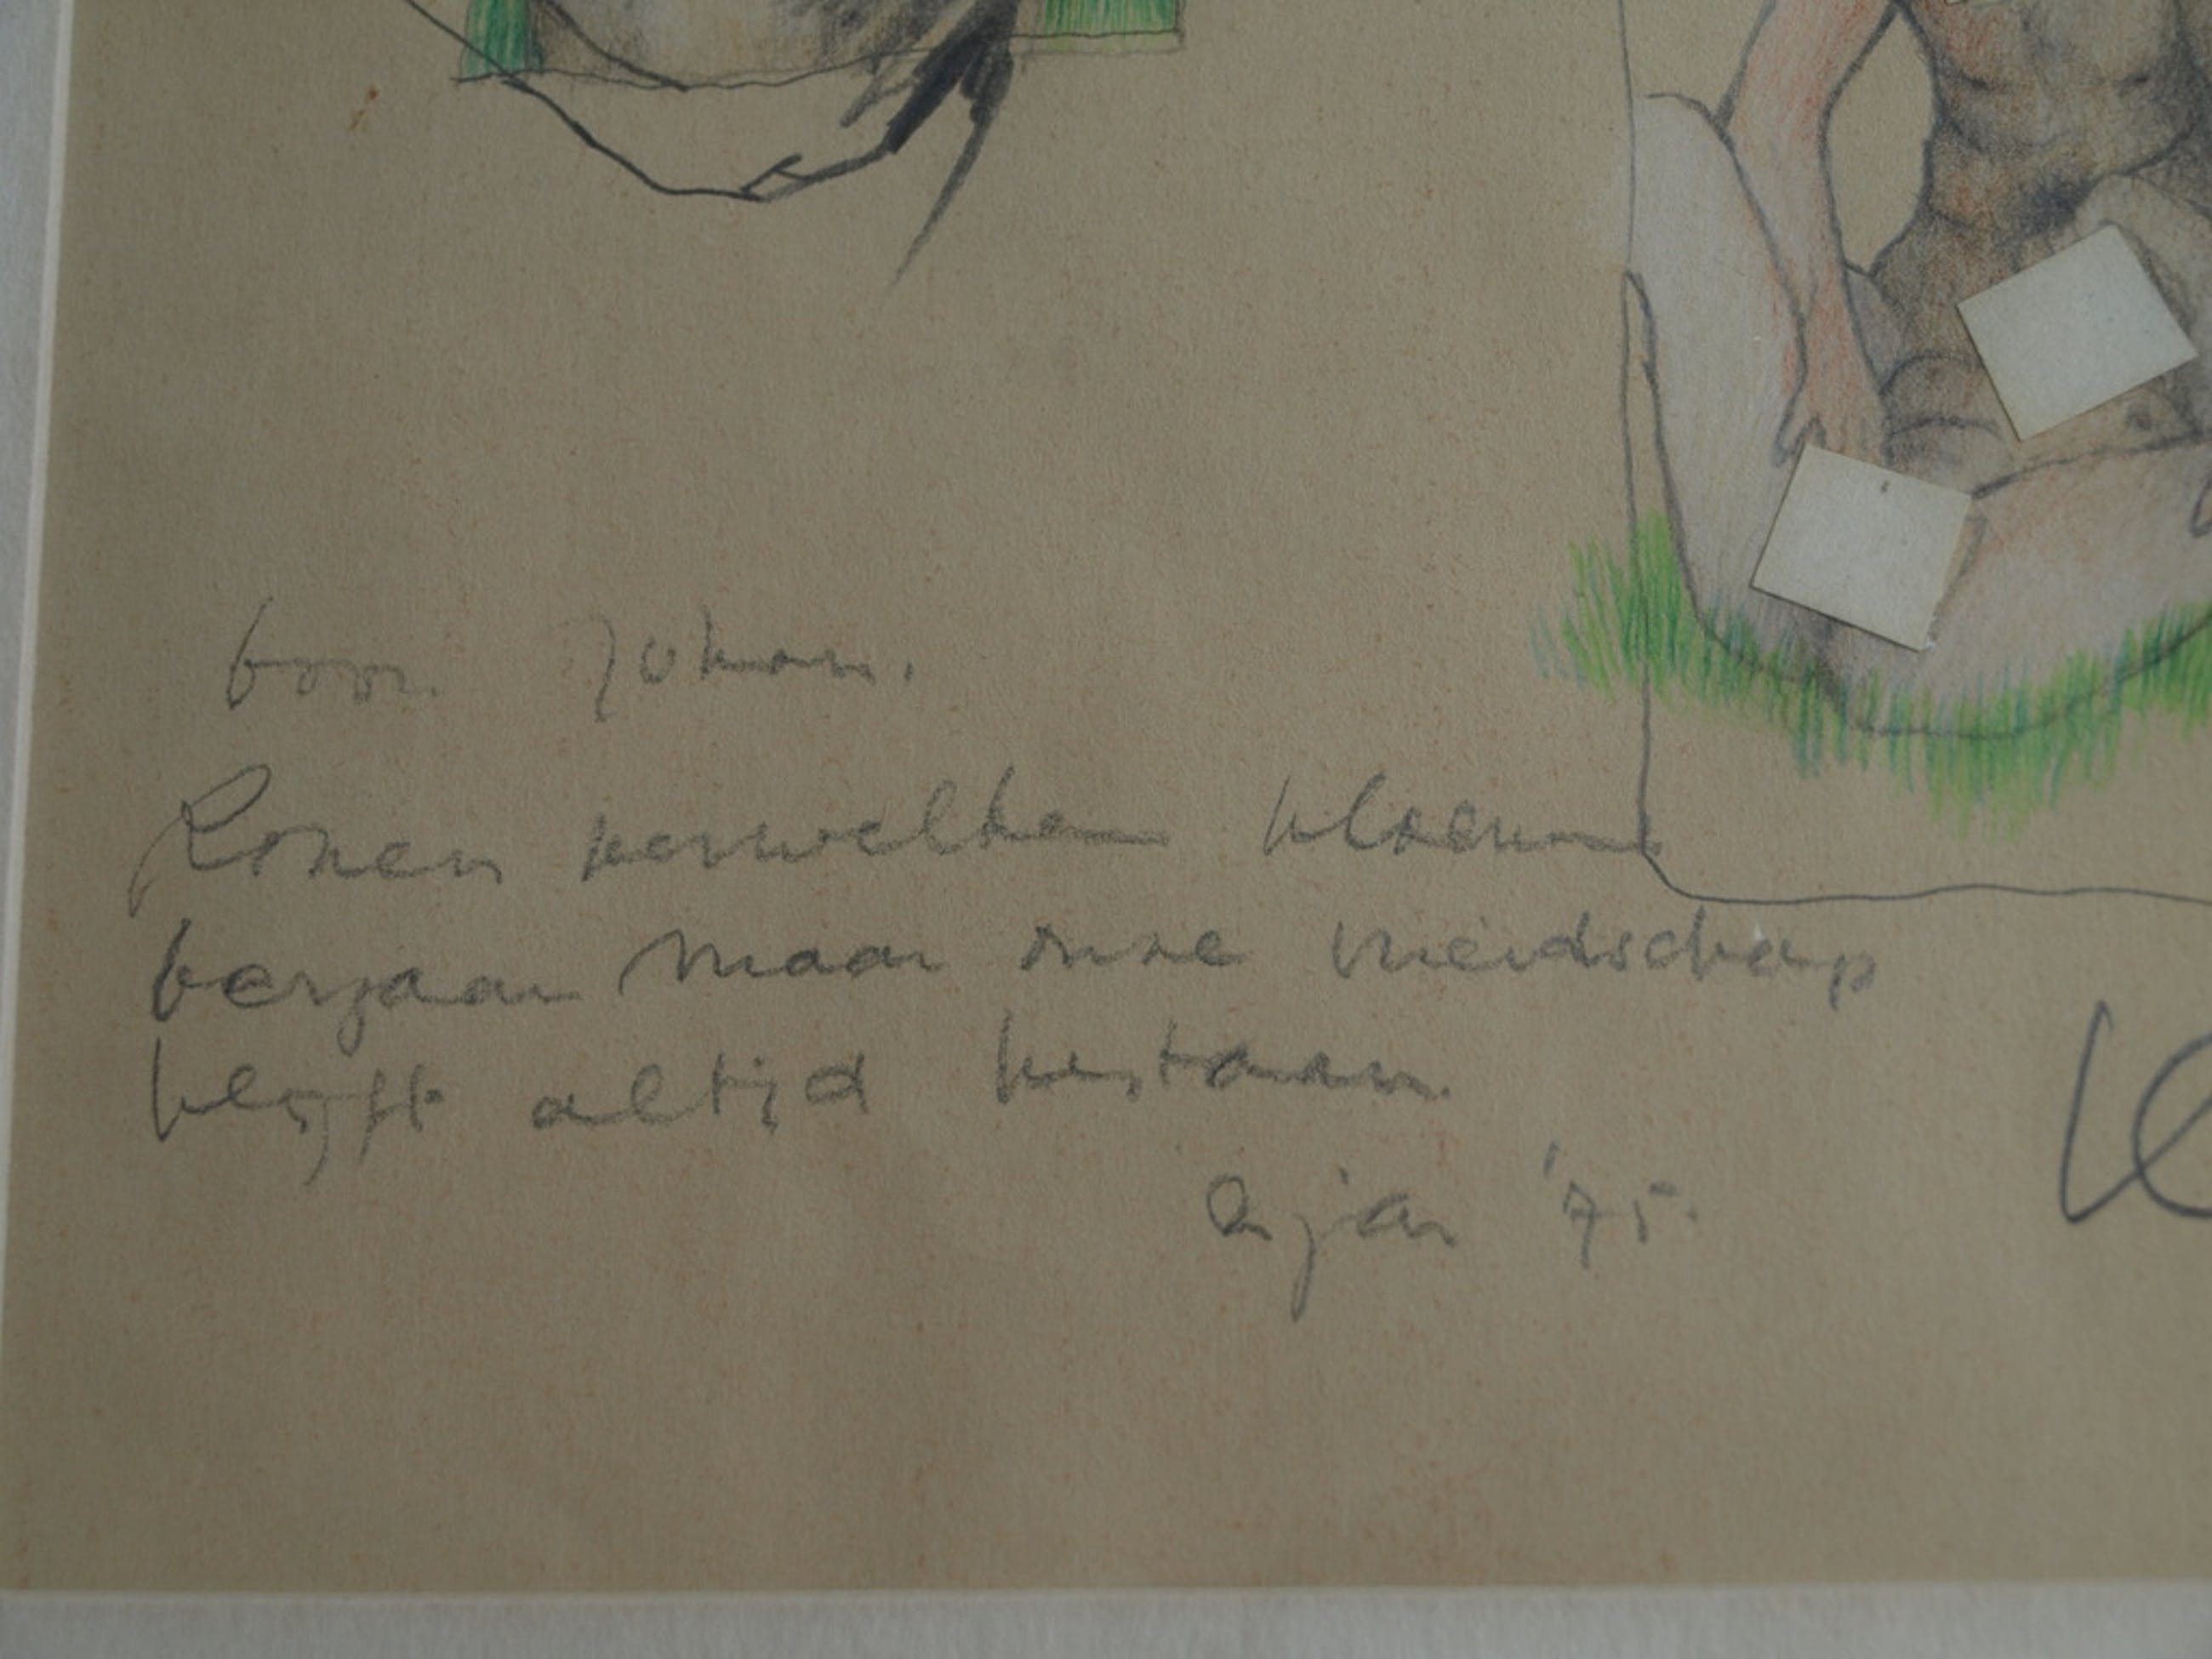 voor Johan.
Rozen verwelken bloemen
vergaan maar onze vriendschap
blijft altijd bestaan.
2 jan '75.